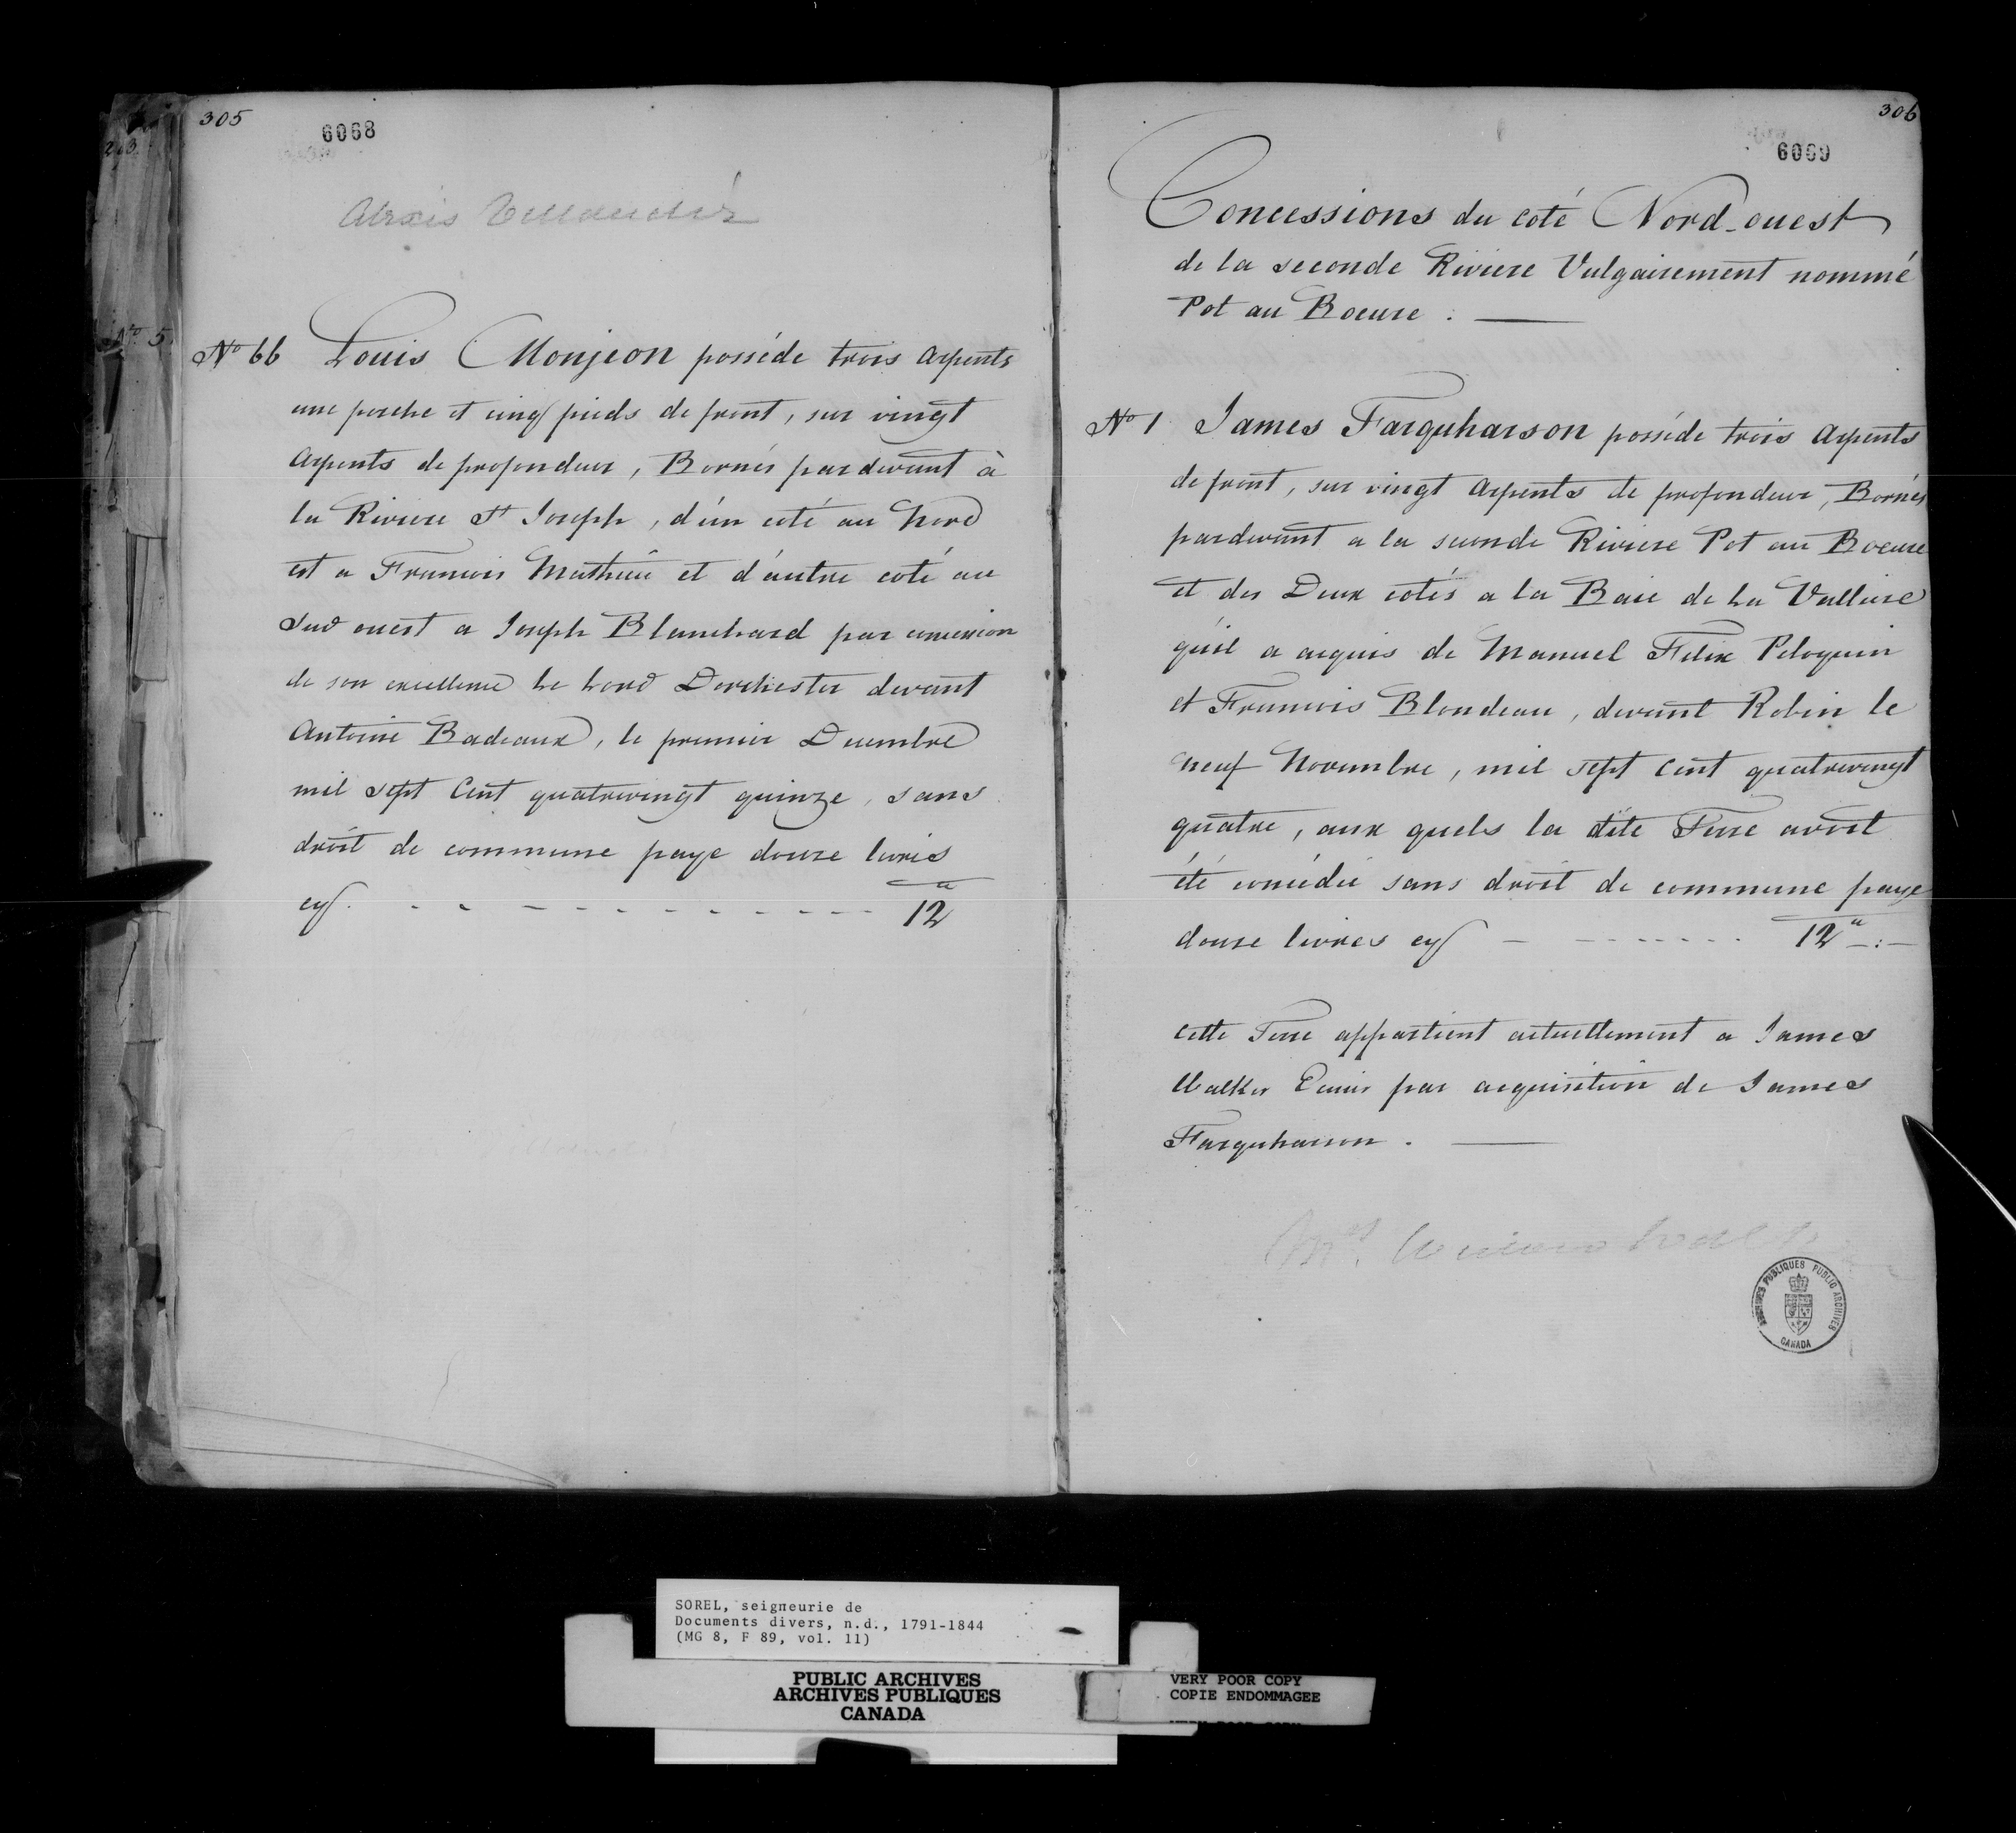 305
6068
Alexis
No 66 Louis Monjeon posséde trois Arpents
une perche et cinq pieds de front, sur vingt
Arpents de profondeur, Bornés pardevant à
la Riviere St Joseph, d'un coté au Nord
est a Francois Mathieu et d'autre coté au
Sud ouest a Joseph Blanchard par concession
de son excellence Le Lord Dorchester devant
Antoine Badeaux, le premier Decembre
mil sept Cent quatrevingt quinze, sans
droit de commune paye douze livres
cy . - - - - - - - - - - 12 ₶
203
No 5
306
6069
Concessions du coté Nord-ouest
de la seconde Riviere Vulgairement nommé
Pot au Boeure .
No 1 James Farquharson posséde trois Arpents
de front, sur vingt Arpents de profondeur, Bornés
pardevant a la seconde Riviere Pot au Boeure
et des Deux cotés a la Baie de La Valliere
qu'il a acquis de Manuel Felix Peloquin
et Francois Blondeau, devant Robin le
neuf Novembre, mil sept Cent quatrevingt
quatre, aux quels la dite Terre avoit
été concédée sans droit de commune paye
douze livres cy - - - - - - - 12 ₶ -:-
Cette Terre appartient actuellement a James
Walker Ecuier par acquisition de James
Farquharson .
Mrs.
ARCHIVES PUBLIQUES PUBLIC ARCHIVES
CANADA
SOREL, seigneurie de
Documents divers, n.d., 1791-1844
(MG 8, F 89, vol. 11)
PUBLIC ARCHIVES
ARCHIVES PUBLIQUES
CANADA
VERY POOR COPY
COPIE ENDOMMAGEE